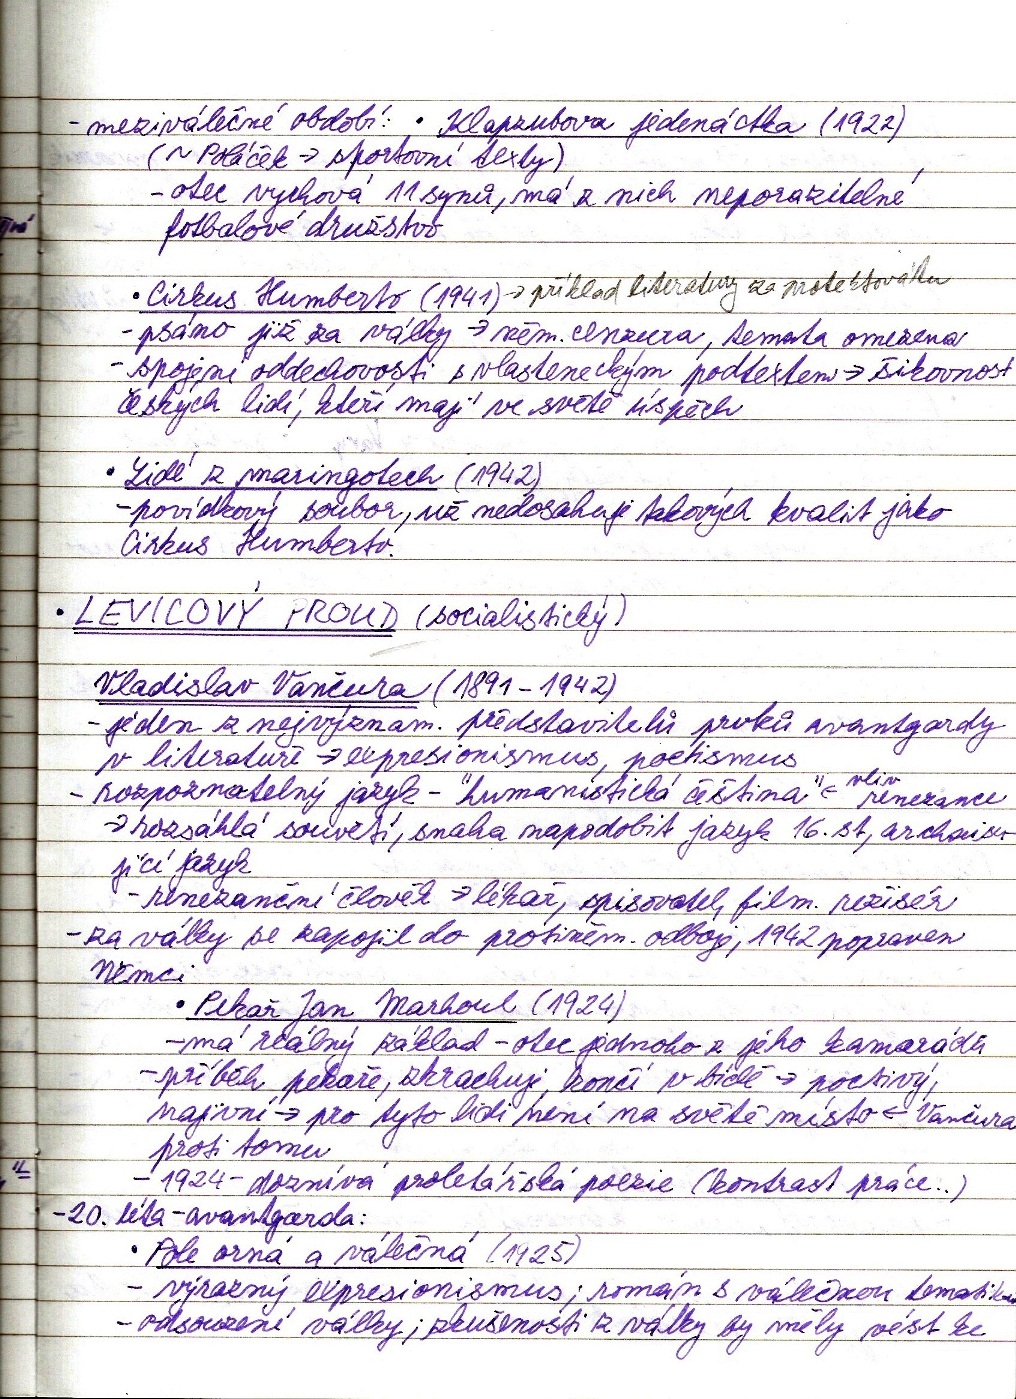 - meziválečné období: • Klapzubova jedenáctka (1922)
(~ Poláček → sportovní texty)
- otec vychová 11 synů, má z nich neporazitelné
fotbalové družstvo
• Cirkus Humberto (1941) → příklad literatury za protektorátu
- psáno již za války → něm. cenzura, témata omezena
- spojení oddechovosti s vlasteneckým podtextem → šikovnost
českých lidí, kteří mají ve světě úspěch
• Lidé z maringotech (1942)
- povídkový soubor, už nedosahuje takových kvalit jako
Cirkus Humberto.
• LEVICOVÝ PROUD (socialistický)
Vladislav Vančura (1891 - 1942)
- jeden z nejvýznam. představitelů prvků avantgardy
v literatuře → expresionismus, poetismus
- rozpoznatelný jazyk - "humanistická čeština" ← vliv renezance
→ rozsáhlá souvětí, snaha napodobit jazyk 16. st, archaizu-
jící jazyk
- renezanční člověk → lékař, spisovatel, film. režisér
- za války se zapojil do protiněm. odboje, 1942 popraven
Němci
• Pekař Jan Marhoul (1924)
- má reálný základ - otec jednoho z jeho kamarádů
- příběh pekaře, zkrachuje, končí v bídě → poctivý,
naivní → pro tyto lidi není na světě místo ← Vančura
proti tomu
- 1924 - doznívá proletářská poezie (kontrast práce..)
- 20. léta - avantgarda:
• Pole orná a válečná (1925)
- výrazný expresionismus; román s válečnou tematikou
- odsouzení války; zkušenosti z války by měly vést ke